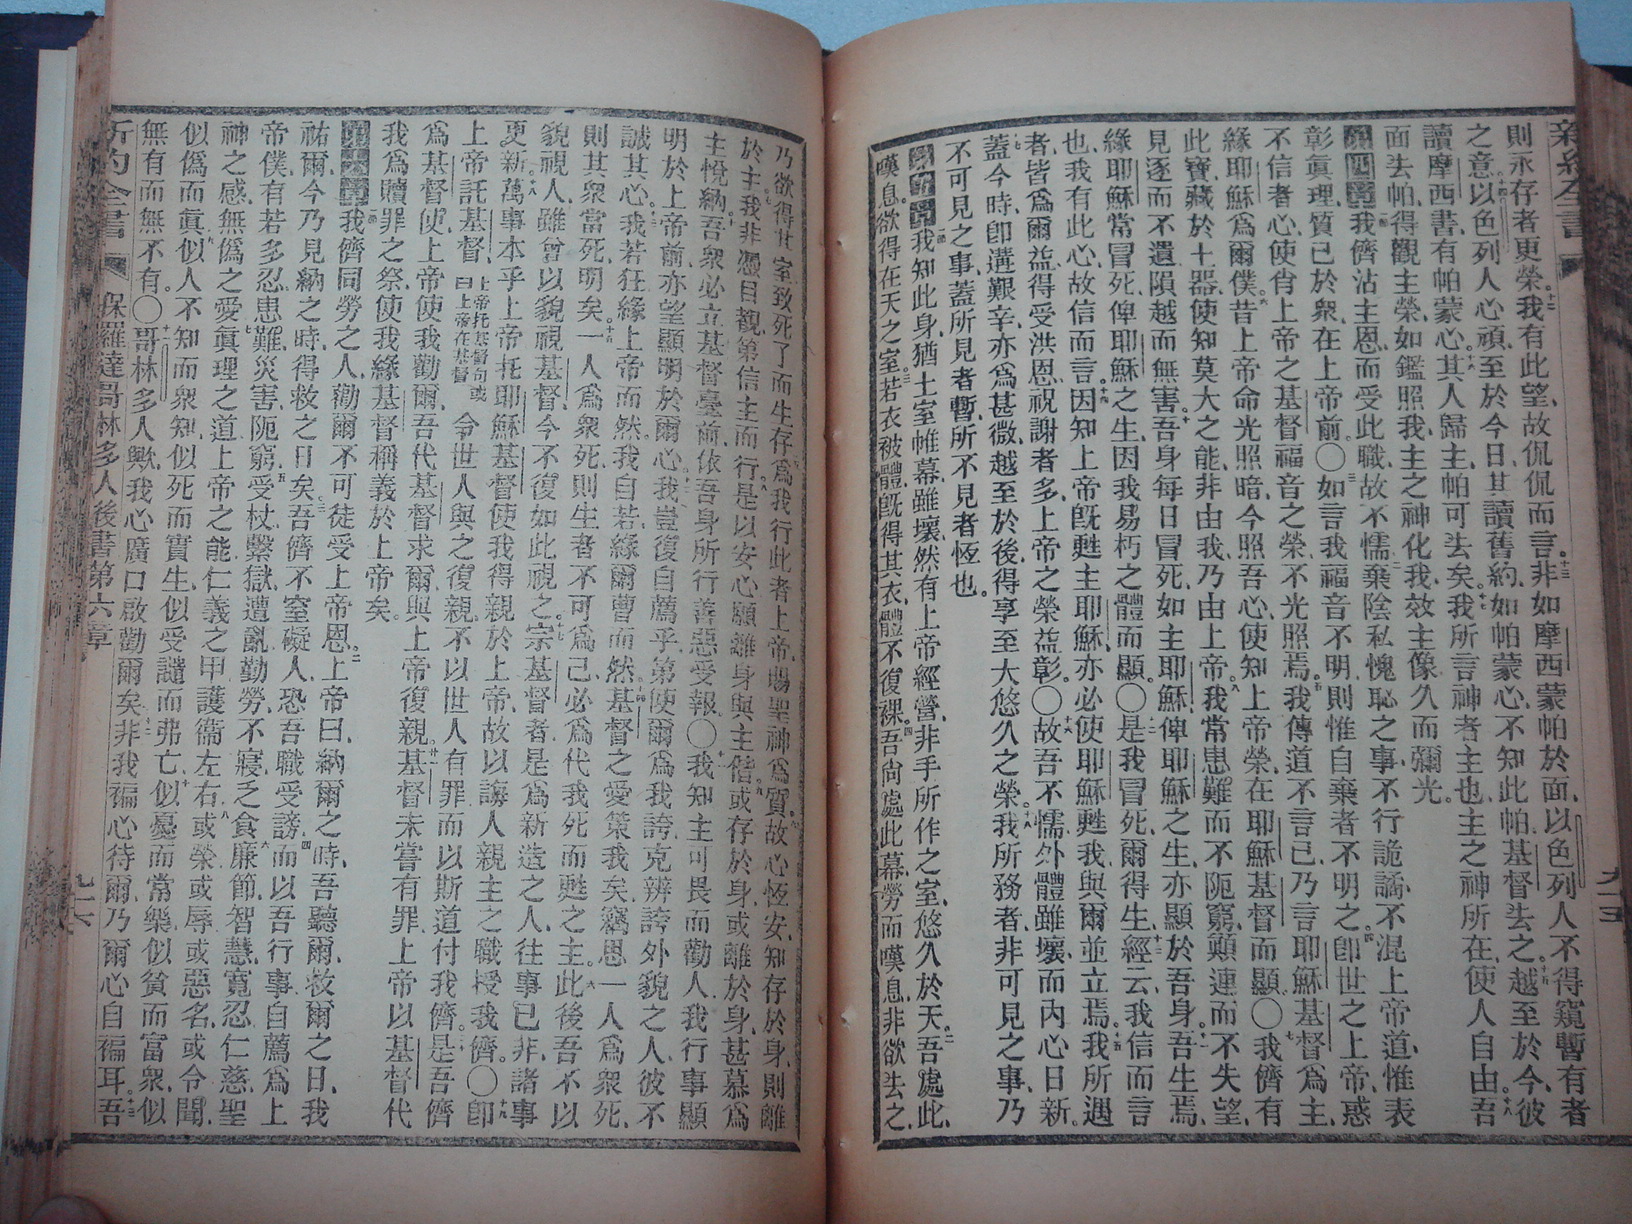 新約全書 九十五
則永存者更榮。十二我有此望、故侃侃而言。十三非如摩西蒙帕於面、以色列人不得窺暫有者
之意。十四以色列人心頑、至於今日、其讀舊約、如帕蒙心、不知此帕、基督去之。十五越至於今、彼
讀摩西書、有帕蒙心。十六其人歸主、帕可去矣。十七我所言神者主也、主之神所在、使人自由。十八吾
面去帕、得觀主榮、如鑑照我、主之神化我、效主像、久而彌光。
第四章一節我儕沾主恩、而受此職、故不懦。二棄陰私愧恥之事、不行詭譎、不混上帝道、惟表
彰眞理、質已於衆、在上帝前。〇三如言我福音不明、則惟自棄者不明之。四卽世之上帝、惑
不信者心、使肖上帝之基督福音之榮、不光照焉。五我傳道不言己、乃言耶穌基督爲主、
緣耶穌爲爾僕。六昔上帝命光照暗、今照吾心、使知上帝榮、在耶穌基督而顯。〇七我儕有
此寶、藏於土器、使知莫大之能、非由我、乃由上帝。八我常患難而不阨窮、顚連而不失望、
見逐而不遺、隕越而無害。十吾身每日冒死、如主耶穌、俾耶穌之生、亦顯於吾身。十一吾生焉、
緣耶穌常冒死、俾耶穌之生、因我易朽之體而顯。〇十二是我冒死、爾得生、十三經云、我信而言
也、我有此心、故信而言。十四因知上帝旣甦主耶穌、亦必使耶穌甦我、與爾並立焉。十五我所遇
者、皆爲爾益、得受洪恩、祝謝者多、上帝之榮益彰。〇十六故吾不懦、外體雖壞、而內心日新。
十七蓋今時、卽遘艱辛、亦爲甚微、越至於後、得享至大悠久之榮。十八我所務者、非可見之事、乃
不可見之事、蓋所見者暫、所不見者恆也。
第五章一節我知此身、猶土室帷幕、雖壞、然有上帝經營、非手所作之室、悠久於天。二吾處此、
嘆息、欲得在天之室。三若衣被體、旣得其衣、體不復裸。四吾尙處此幕、勞而嘆息、非欲去之、
乃欲得其室、致死了而生存。五爲我行此者上帝、賜聖神爲質。六故心恆安、知存於身、則離
於主。七我非憑目觀、第信主而行。八是以安心、願離身、與主偕。九或存於身、或離於身、甚慕爲
主悅納。十吾衆必立基督臺前、依吾身所行善惡受報。〇十一我知主可畏、而勸人、我行事顯
明於上帝前、亦望顯明於爾心。十二我豈復自薦乎、第使爾爲我誇、克辨誇外貌之人、彼不
誠其心。十三我若狂、緣上帝而然、我自若、緣爾曹而然。十四基督之愛策我矣、竊思一人爲衆死、
則其衆當死、明矣。十五一人爲衆死、則生者不可爲己、必爲代我死而甦之主。十六此後吾不以
貌視人、雖曾以貌視基督、今不復如此視之。十七宗基督者、是爲新造之人、往事已非、諸事
更新。十八萬事本乎上帝、托耶穌基督、使我得親於上帝、故以諭人親主之職授我儕。〇十九卽
上帝託基督、上帝托基督句或曰上帝在基督 令世人與之復親、不以世人有罪、而以斯道付我儕。二十是吾儕
爲基督使、上帝使我勸爾、吾代基督求爾、與上帝復親。廿一基督未嘗有罪、上帝以基督代
我爲贖罪之祭、使我緣基督稱義於上帝矣。
第六章一節我儕同勞之人、勸爾不可徒受上帝恩。二上帝曰、納爾之時、吾聽爾、救爾之日、我
祐爾、今乃見納之時、得救之日矣。三吾儕不窒礙人、恐吾職受謗。四而以吾行事、自薦爲上
帝僕、有若多忍、患難、災害、阨窮、五受杖、繫獄、遭亂、勤勞、不寢、乏食、六廉節、智慧、寬忍、仁慈、聖
神之感、無僞之愛、七眞理之道、上帝之能、仁義之甲、護衞左右、八或榮、或辱、或惡名、或令聞、
似僞而眞、九似人不知、而衆知、似死而實生、似受譴而弗亡、十似憂而常樂、似貧而富衆、似
無有而無不有。〇十一哥林多人歟、我心廣、口啟勸爾矣。十二非我褊心待爾、乃爾心自褊耳。十三吾
新約全書 保羅達哥林多人後書第六章 九十六